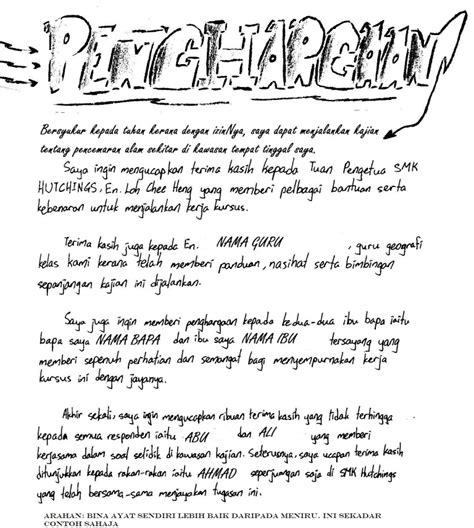 PENGHARGAAN
Bersyukur kepada tuhan kerana dengan izinNya, saya dapat menjalankan kajian
tentang pencemaran alam sekitar di kawasan tempat tinggal saya.
Saya ingin mengucapkan terima kasih kepada Tuan Pengetua SMK
HUTCHINGS, En. Loh Chee Heng yang memberi pelbagai bantuan serta
kebenaran untuk menjalankan kerja kursus.
Terima kasih juga kepada En. NAMA GURU , guru geografi
kelas kami kerana telah memberi panduan, nasihat serta bimbingan
sepanjangan kajian ini dijalankan.
Saya juga ingin memberi penghargaan kepada kedua-dua ibu bapa iaitu
bapa saya NAMA BAPA dan ibu saya NAMA IBU tersayang yang
memberi sepenuh perhatian dan semangat bagi menyempurnakan kerja
kursus ini dengan jayanya.
Akhir sekali, saya ingin mengucapkan ribuan terima kasih yang tidak terhingga
kepada semua responden iaitu ABU dan ALI yang memberi
kerjasama dalam soal selidik di kawasan kajian. Seterusnya, saya ucapan terima kasih
ditunjukkan kepada rakan-rakan iaitu AHMAD seperjuangan saja di SMK Hutchings
yang telah bersama-sama menjayakan tugasan ini.
ARAHAN: BINA AYAT SENDIRI LEBIH BAIK DARIPADA MENIRU. INI SEKADAR
CONTOH SAHAJA